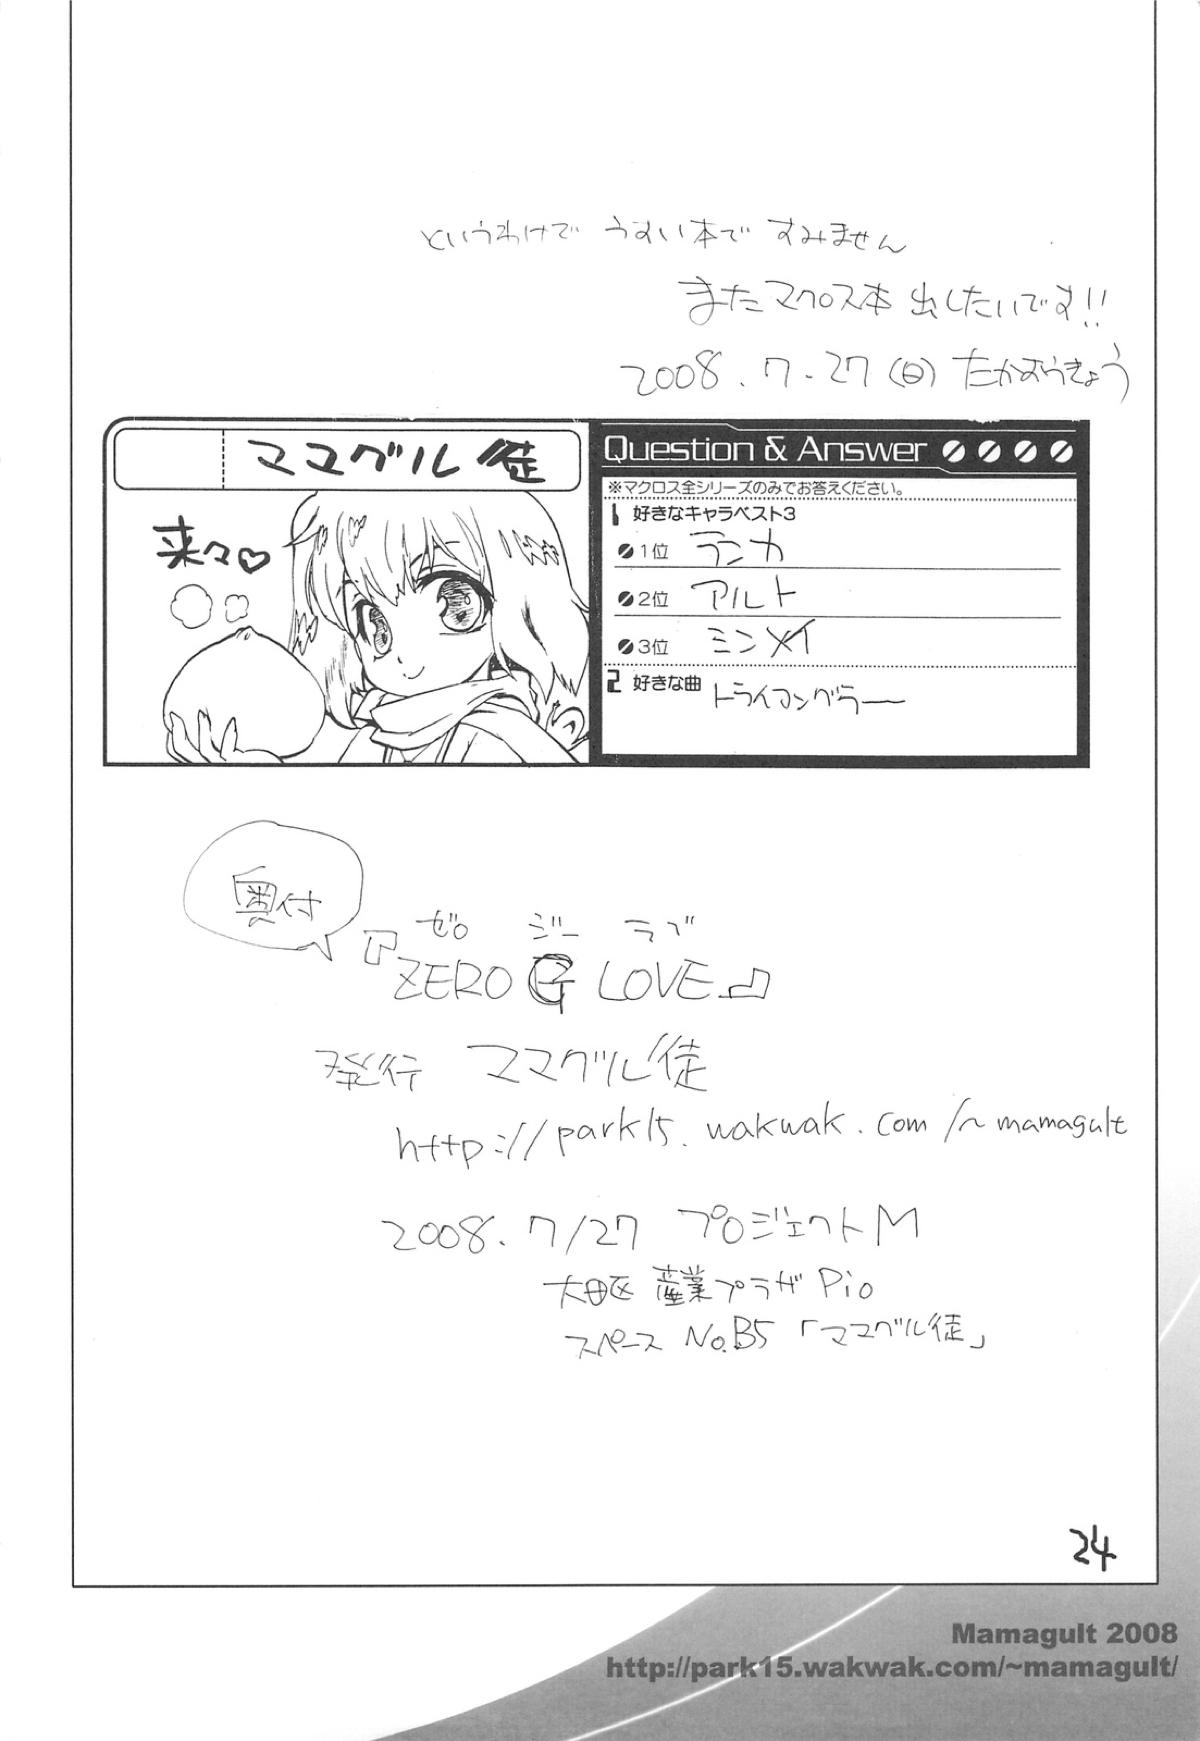 というわけで うすい本で すみません
またマクロス本 出したいです!!
2008.7.27(日) たかむらきょう
ママグル徒
来々♡
Question & Answer
※マクロス全シリーズのみでお答えください。
1 好きなキャラベスト3
1位 ランカ
2位 アルト
3位 ミンメイ
2 好きな曲 トライアングラー
奥付
ゼロ ジー ラブ
『ZERO G LOVE』
発行 ママグル徒
http://park15.wakwak.com/~mamagult
2008.7/27 プロジェクトM
大田区 産業プラザ Pio
スペース No.B5 「ママグル徒」
24
Mamagult 2008
http://park15.wakwak.com/~mamagult/